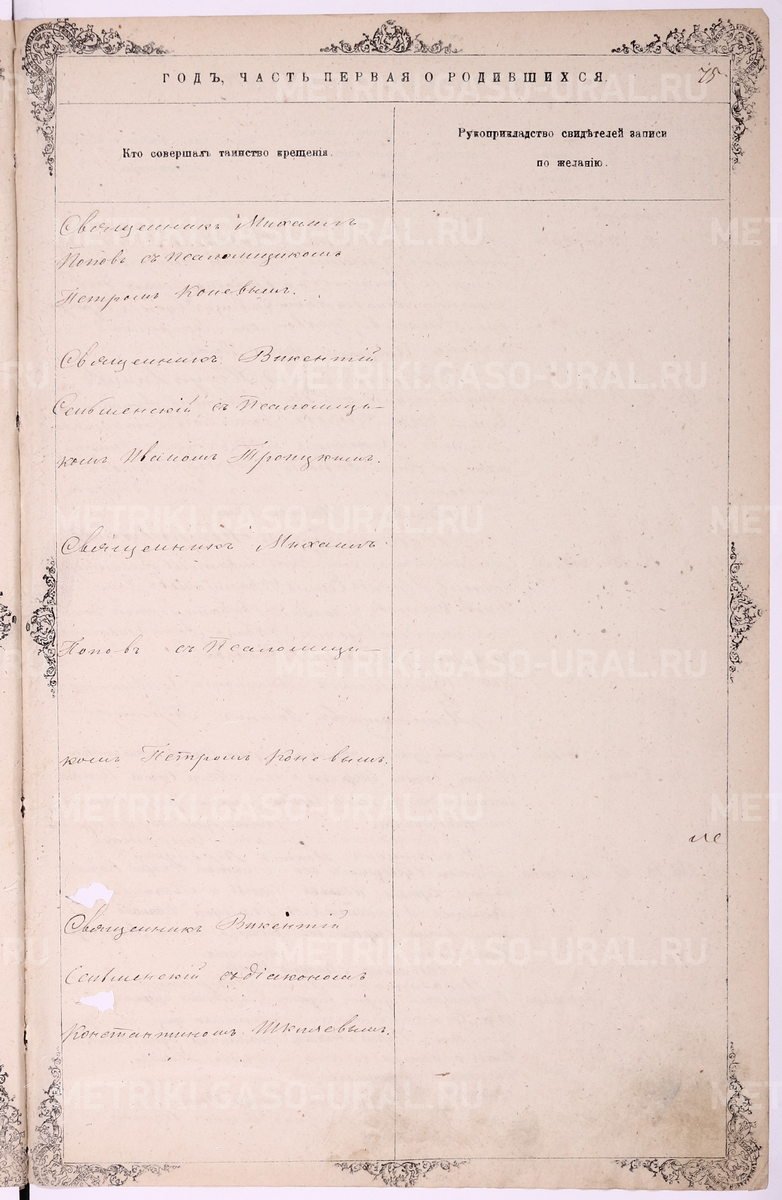 ГОДЪ, ЧАСТЬ ПЕРВАЯ О РОДИВШИХСЯ.
75
Кто совершалъ таинство крещенія.
Рукоприкладство свидѣтелей записи
по желанію.
Священникъ Михаилъ
Поповъ съ Псаломщикомъ
Петромъ Коневымъ.
Священникъ Викентій
Сельменскій съ Псаломщи-
комъ Иваномъ Троицкимъ.
Священникъ Михаилъ
Поповъ съ Псаломщи-
комъ Петромъ Коневымъ.
Священникъ Викентій
Сельменскій съ діакономъ
Константиномъ Шкляевымъ.
METRIKI.GASO-URAL.RU